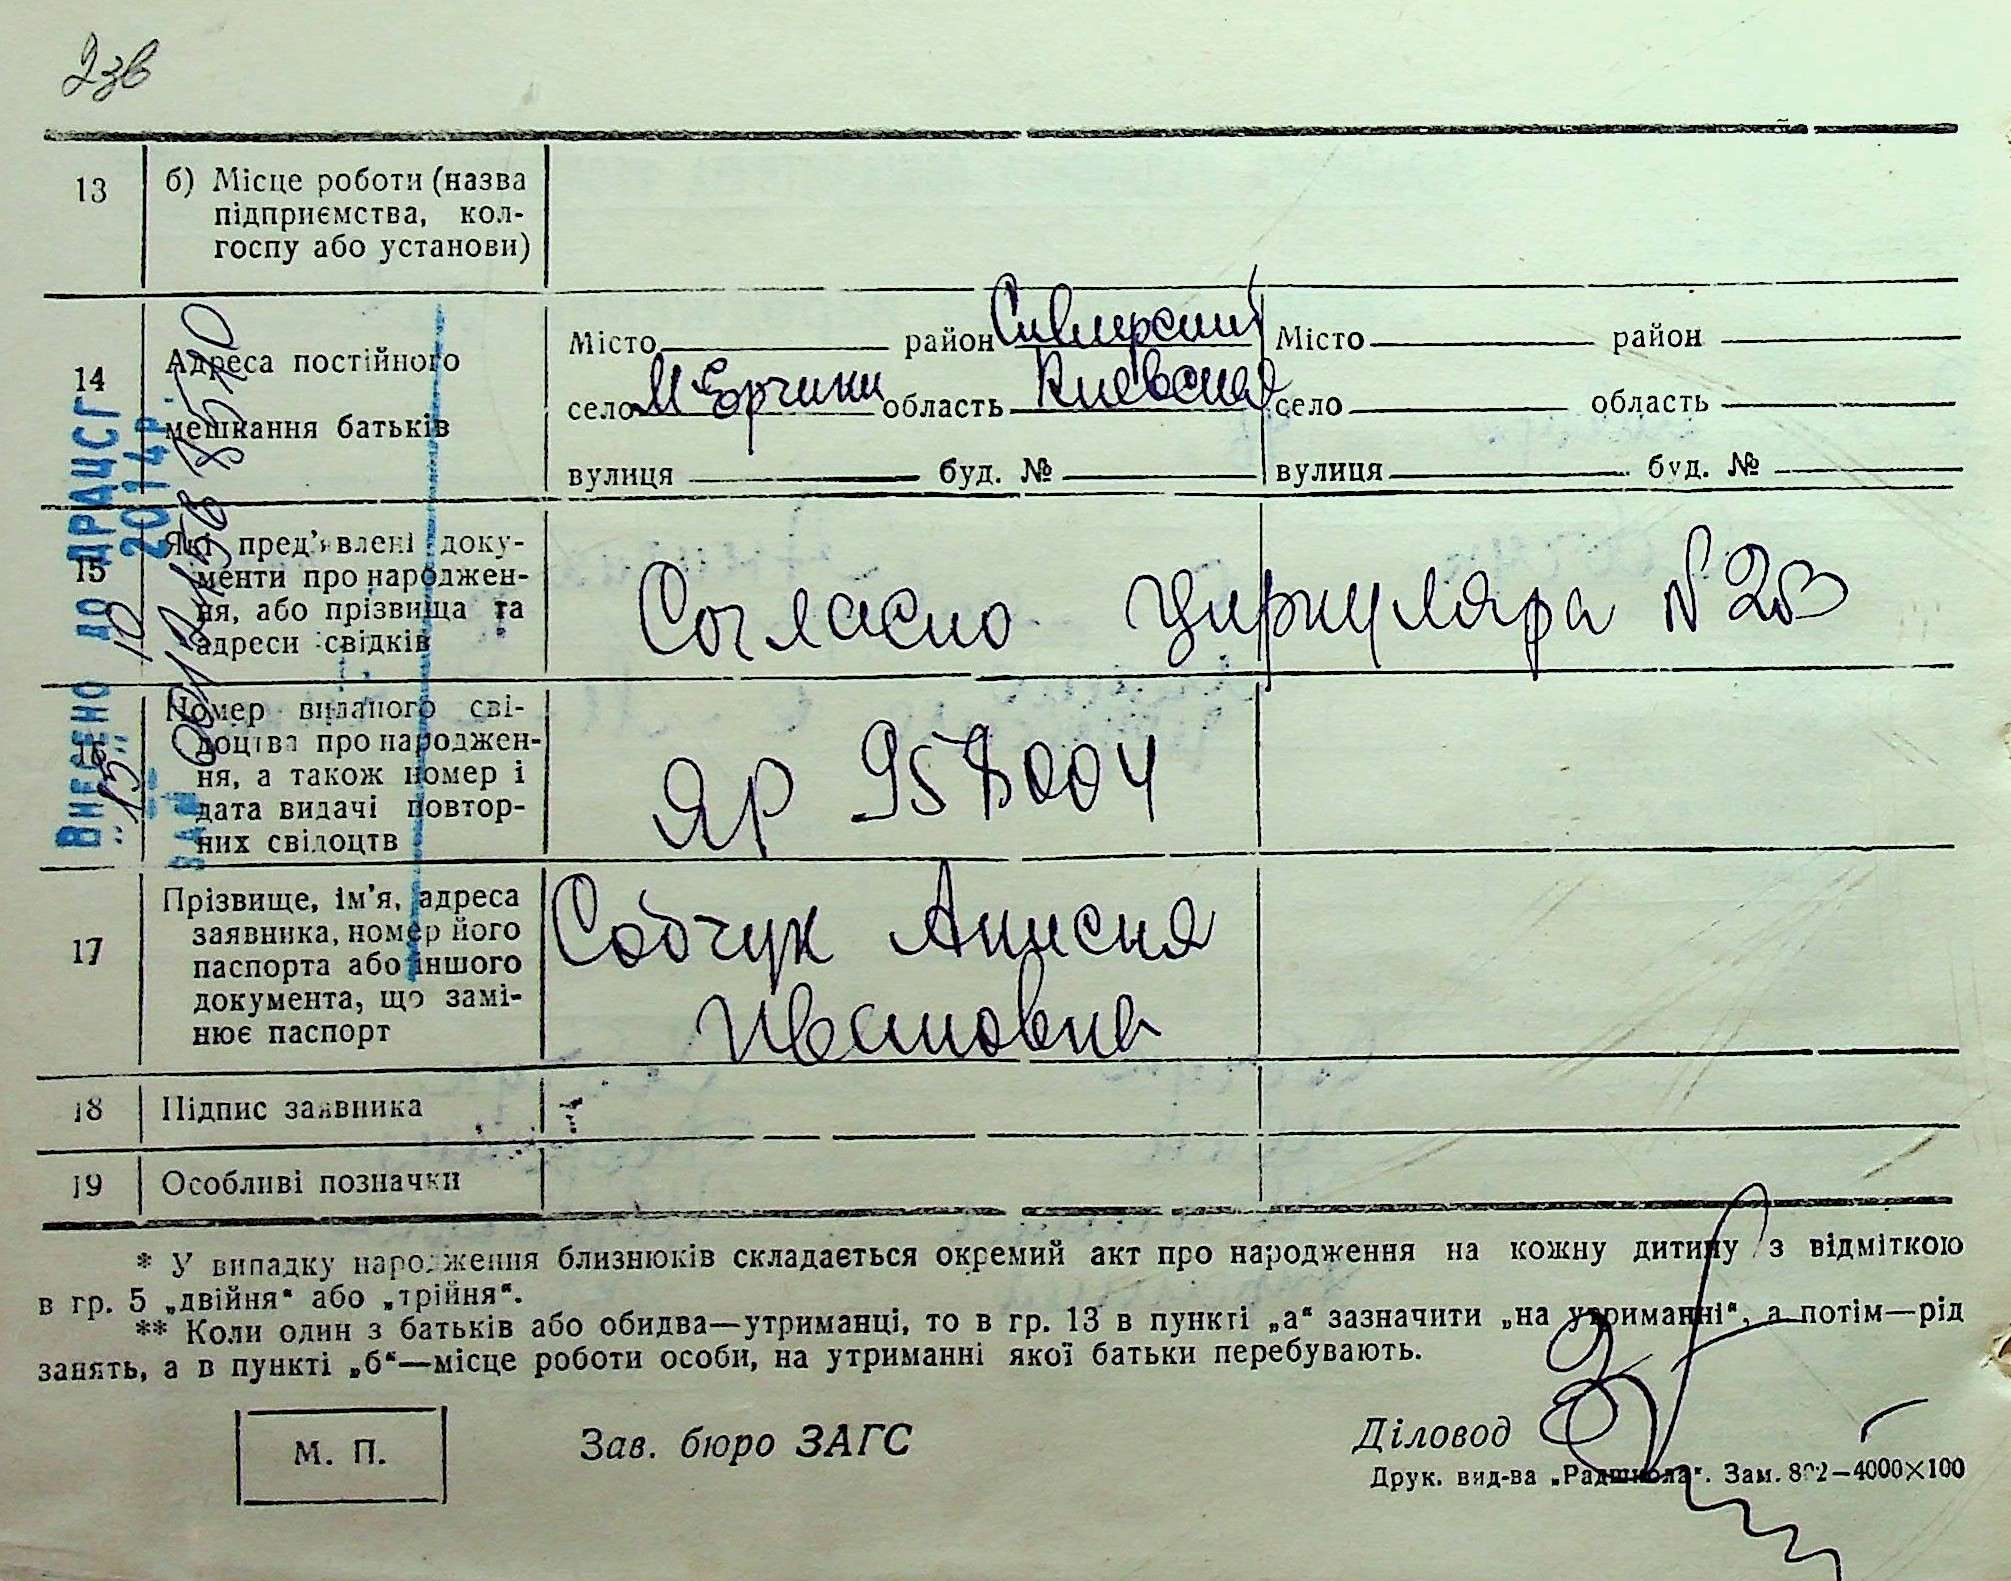 13 б) Місце роботи (назва
підприємства, кол-
госпу або установи)
14 Адреса постійного
мешкання батьків
Місто район Сквирский
село М Ерчики область Киевская
вулиця буд. №
Місто район
село область
вулиця буд. №
15 Які пред'явлені доку-
менти про народжен-
ня, або прізвища та
адреси свідків
Согласно циркуляра №
16 Номер виданого сві-
доцтва про народжен-
ня, а також номер і
дата видачі повтор-
них свідоцтв
ЯР 958004
17 Прізвище, ім'я, адреса
заявника, номер його
паспорта або іншого
документа, що замі-
нює паспорт
Собчук Анисия
Ивановна
18 Підпис заявника
19 Особливі позначки
ВНЕСЕНО ДО ДРАЦСГ
"15" 10 2014р.
* У випадку народження близнюків складається окремий акт про народження на кожну дитину з відміткою
в гр. 5 „двійня“ або „трійня“.
** Коли один з батьків або обидва—утриманці, то в гр. 13 в пункті „а“ зазначити „на утриманні“, а потім—рід
занять, а в пункті „б“—місце роботи особи, на утриманні якої батьки перебувають.
М. П.
Зав. бюро ЗАГС
Діловод
Друк. вид-ва „Радшкола“. Зам. 802—4000×100